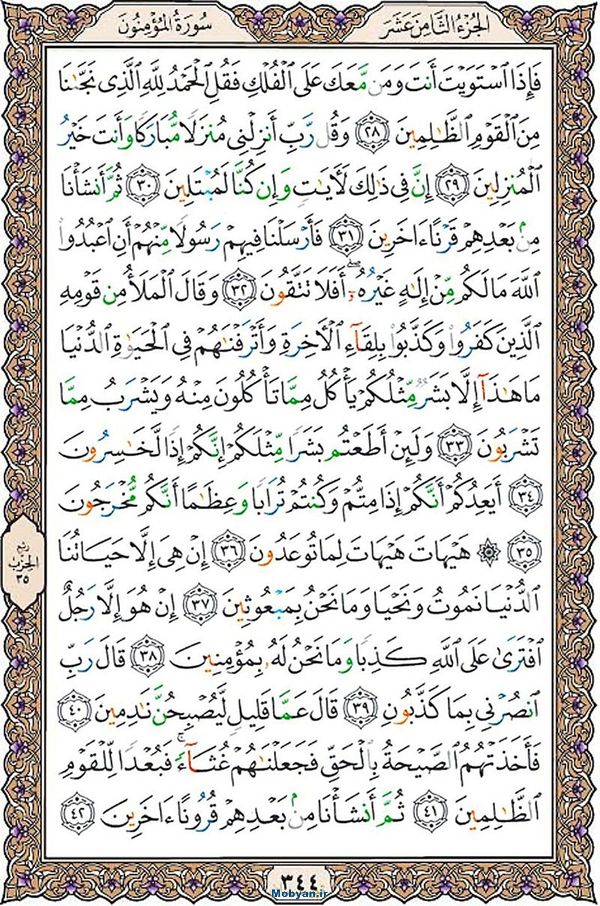 الجُزءُ الثَّامِنَ عَشَرَ
سُورَةُ المُؤْمِنُونَ
فَإِذَا ٱسْتَوَيْتَ أَنتَ وَمَن مَّعَكَ عَلَى ٱلْفُلْكِ فَقُلِ ٱلْحَمْدُ لِلَّهِ ٱلَّذِى نَجَّىٰنَا
مِنَ ٱلْقَوْمِ ٱلظَّـٰلِمِينَ ٢٨ وَقُل رَّبِّ أَنزِلْنِى مُنزَلًا مُّبَارَكًا وَأَنتَ خَيْرُ
ٱلْمُنزِلِينَ ٢٩ إِنَّ فِى ذَٰلِكَ لَـَٔايَـٰتٍ وَإِن كُنَّا لَمُبْتَلِينَ ٣٠ ثُمَّ أَنشَأْنَا
مِنۢ بَعْدِهِمْ قَرْنًا ءَاخَرِينَ ٣١ فَأَرْسَلْنَا فِيهِمْ رَسُولًا مِّنْهُمْ أَنِ ٱعْبُدُوا۟
ٱللَّهَ مَا لَكُم مِّنْ إِلَـٰهٍ غَيْرُهُۥٓ ۖ أَفَلَا تَتَّقُونَ ٣٢ وَقَالَ ٱلْمَلَأُ مِن قَوْمِهِ
ٱلَّذِينَ كَفَرُوا۟ وَكَذَّبُوا۟ بِلِقَآءِ ٱلْـَٔاخِرَةِ وَأَتْرَفْنَـٰهُمْ فِى ٱلْحَيَوٰةِ ٱلدُّنْيَا
مَا هَـٰذَآ إِلَّا بَشَرٌ مِّثْلُكُمْ يَأْكُلُ مِمَّا تَأْكُلُونَ مِنْهُ وَيَشْرَبُ مِمَّا
تَشْرَبُونَ ٣٣ وَلَئِنْ أَطَعْتُم بَشَرًا مِّثْلَكُمْ إِنَّكُمْ إِذًا لَّخَـٰسِرُونَ
٣٤ أَيَعِدُكُمْ أَنَّكُمْ إِذَا مِتُّمْ وَكُنتُمْ تُرَابًا وَعِظَـٰمًا أَنَّكُم مُّخْرَجُونَ
٣٥ ۞ هَيْهَاتَ هَيْهَاتَ لِمَا تُوعَدُونَ ٣٦ إِنْ هِىَ إِلَّا حَيَاتُنَا
ٱلدُّنْيَا نَمُوتُ وَنَحْيَا وَمَا نَحْنُ بِمَبْعُوثِينَ ٣٧ إِنْ هُوَ إِلَّا رَجُلٌ
ٱفْتَرَىٰ عَلَى ٱللَّهِ كَذِبًا وَمَا نَحْنُ لَهُۥ بِمُؤْمِنِينَ ٣٨ قَالَ رَبِّ
ٱنصُرْنِى بِمَا كَذَّبُونِ ٣٩ قَالَ عَمَّا قَلِيلٍ لَّيُصْبِحُنَّ نَـٰدِمِينَ ٤٠
فَأَخَذَتْهُمُ ٱلصَّيْحَةُ بِٱلْحَقِّ فَجَعَلْنَـٰهُمْ غُثَآءً ۚ فَبُعْدًا لِّلْقَوْمِ
ٱلظَّـٰلِمِينَ ٤١ ثُمَّ أَنشَأْنَا مِنۢ بَعْدِهِمْ قُرُونًا ءَاخَرِينَ ٤٢
ربع
الحزب
٣٥
٣٤٤
Mobyan.ir